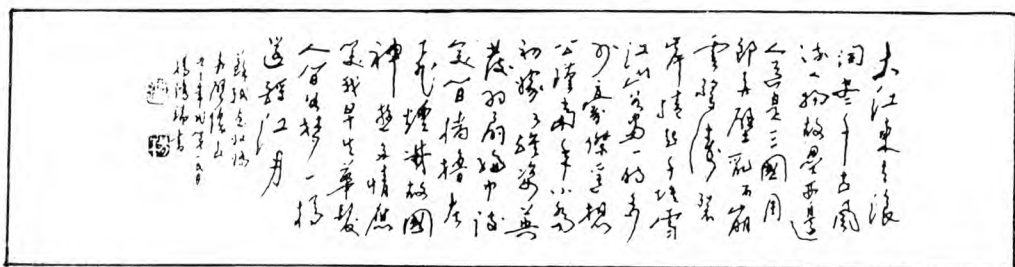 大江東去浪
淘盡千古風
流人物故壘西邊
人道是三國周
郎赤壁亂石崩
雲驚濤裂
岸捲起千堆雪
江山如畫一時多
少豪傑遙想
公瑾當年小喬
初嫁了雄姿英
發羽扇綸巾談
笑間檣櫓灰
飛煙滅故國
神遊多情應
笑我早生華髮
人間如夢一樽
還酹江月
蘇軾念奴嬌
赤壁懷古